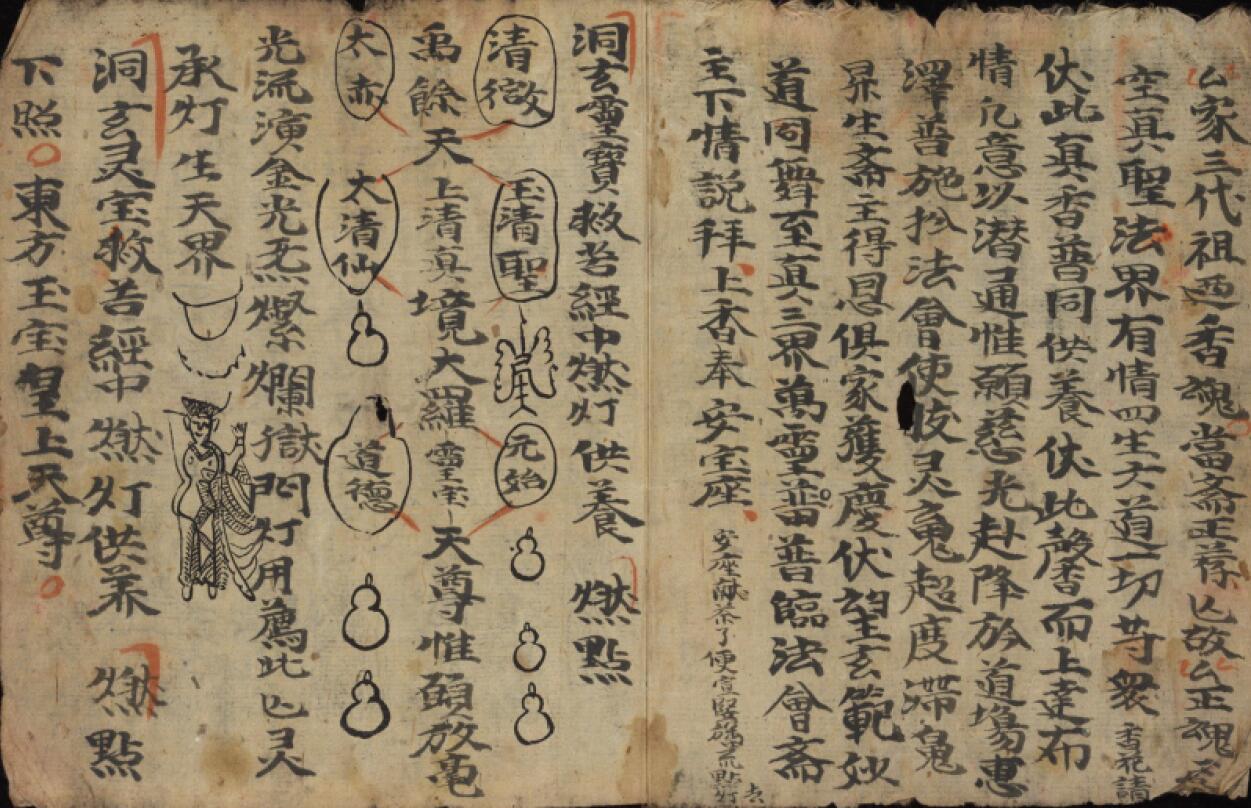 厶家三代祖迊香魂當斋正荐亡故厶正魂
空真聖法界有情四生六道一切等衆 香花請
伏此真香普同供養伏此馨香而上達布
情凢意以潜通惟願慈光赴降於道場惠
澤普施扵法會使彼灵䰟超度滯䰟
昇生斋主得恩俱家獲慶伏望玄範妙
道同舞至真三界萬靈普普臨法會斋
主下情説拜上香奉安宝座
安座献茶了便宣竪旛點灯
洞玄靈寶救苦經中燃灯供養 燃點
清微 玉清聖 元始
禹餘天上清真境大羅靈宝天尊惟願放毫
太赤 太清仙 道德
光流演金光无燦爛獄門灯用薦此亡灵
承灯生天界
洞玄灵宝救苦經中燃灯供养 燃點
下照東方玉宝皇上天尊